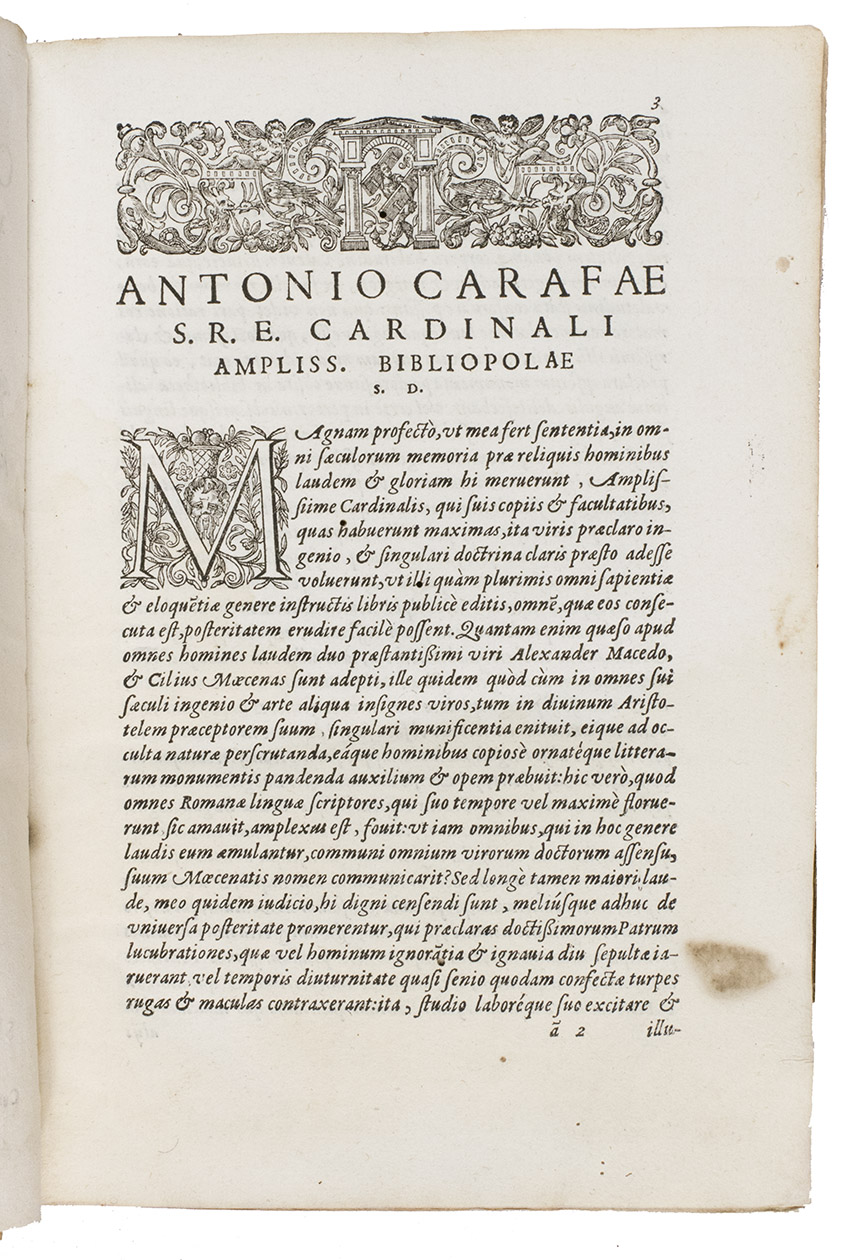 3
ANTONIO CARAFAE
S. R. E. CARDINALI
AMPLISS. BIBLIOPOLAE
S. D.
MAgnam profecto, vt mea fert sententia, in om-
ni sæculorum memoria præ reliquis hominibus
laudem & gloriam hi meruerunt, Amplis-
siime Cardinalis, qui suis copiis & facultatibus,
quas habuerunt maximas, ita viris præclaro in-
genio, & singulari doctrina claris præsto adesse
voluerunt, vt illi quàm plurimis omni sapientiæ
& eloquẽtiæ genere instructis libris publicè editis, omnẽ, quæ eos conse-
cuta est, posteritatem erudire facilè possent. Quantam enim quæso apud
omnes homines laudem duo præstantißimi viri Alexander Macedo,
& Cilius Mœcenas sunt adepti, ille quidem quòd cùm in omnes sui
sæculi ingenio & arte aliqua insignes viros, tum in diuinum Aristo-
telem præceptorem suum, singulari munificentia enituit, eique ad oc-
culta naturæ perscrutanda, eáque hominibus copiosè ornatéque littera-
rum monumentis pandenda auxilium & opem præbuit: hic verò, quod
omnes Romanæ linguæ scriptores, qui suo tempore vel maximè florue-
runt sic amauit, amplexus est, fouit: vt iam omnibus, qui in hoc genere
laudis eum æmulantur, communi omnium virorum doctorum assensu,
suum Mœcenatis nomen communicarit? Sed longè tamen maiori lau-
de, meo quidem iudicio, hi digni censendi sunt, meliúsque adhuc de
vniuersa posteritate promerentur, qui præclaras doctißimorum Patrum
lucubrationes, quæ vel hominum ignorãtia & ignauia diu sepultæ ia-
ruerant vel temporis diuturnitate quasi senio quodam confectæ turpes
rugas & maculas contraxerant: ita, studio laboréque suo excitare &
ã 2 illu-